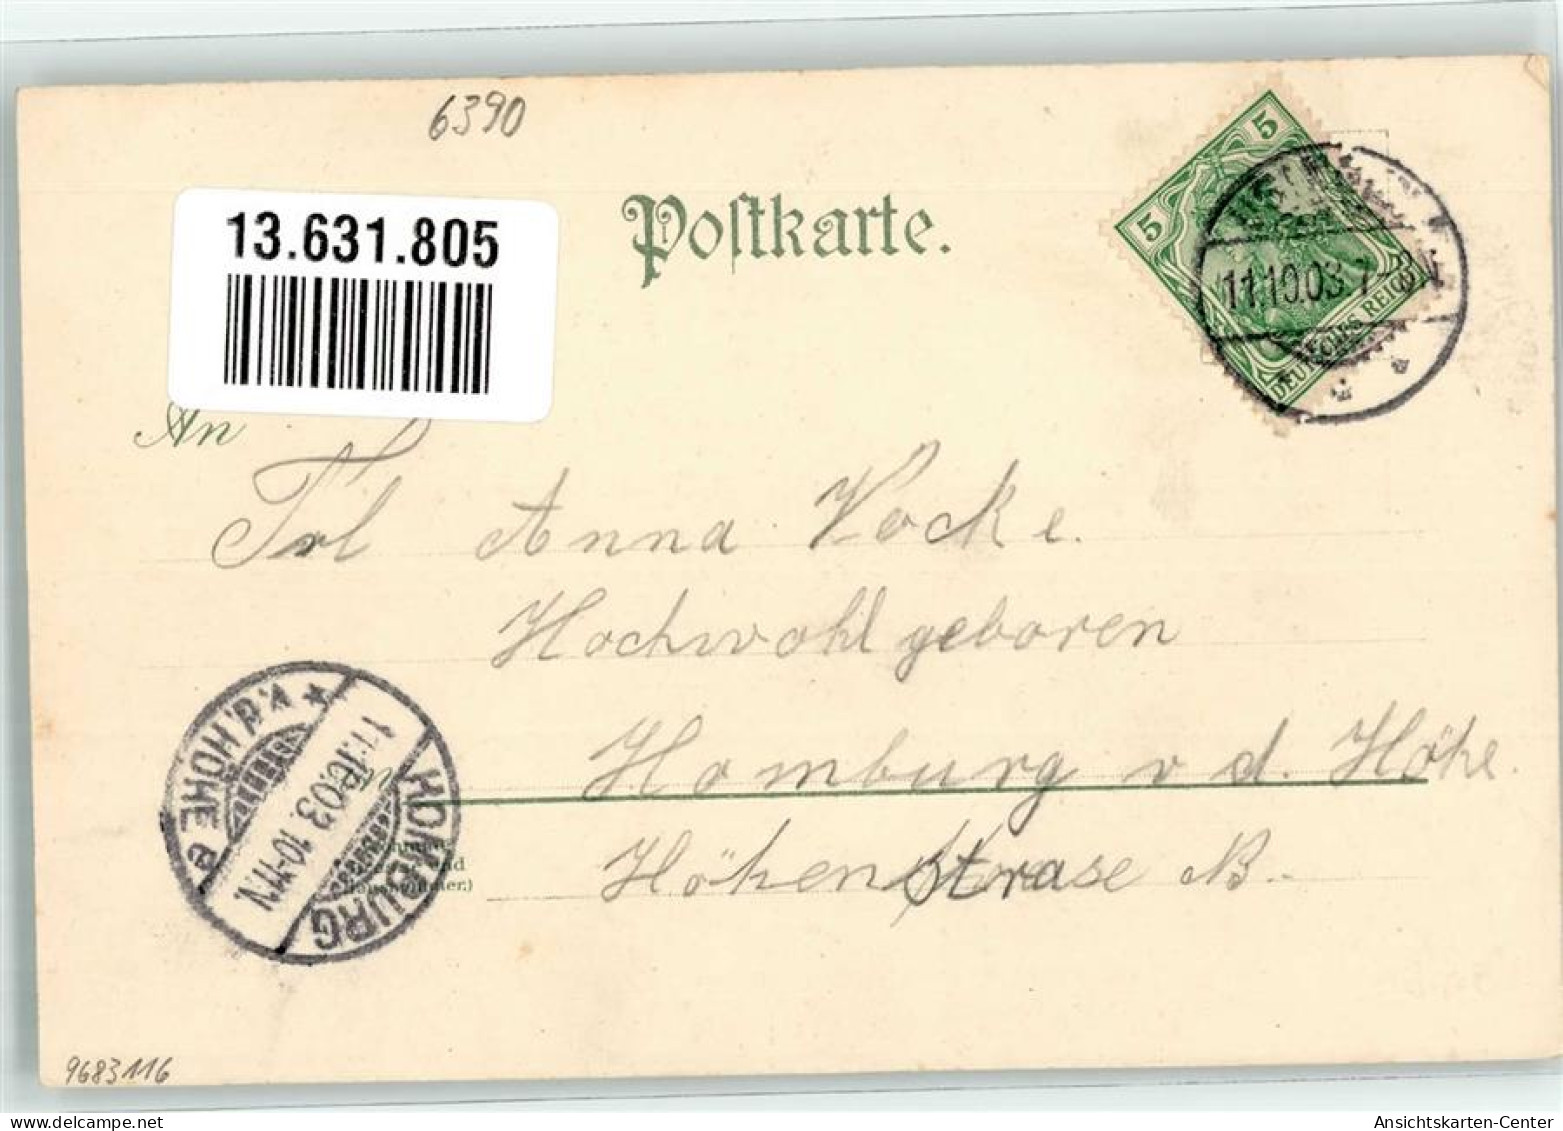 6390
13.631.805
Postkarte.
5
5
DEUTSCHES REICH
11.10.03 7-8N
An
Frl Anna Vocke.
Hochwohlgeboren
Homburg v d. Höhe.
Höhenstrase
HOMBURG v.d. HÖHE
11.10.03. 10-11N.
9683116
delcampe.net
Ansichtskarten-Center